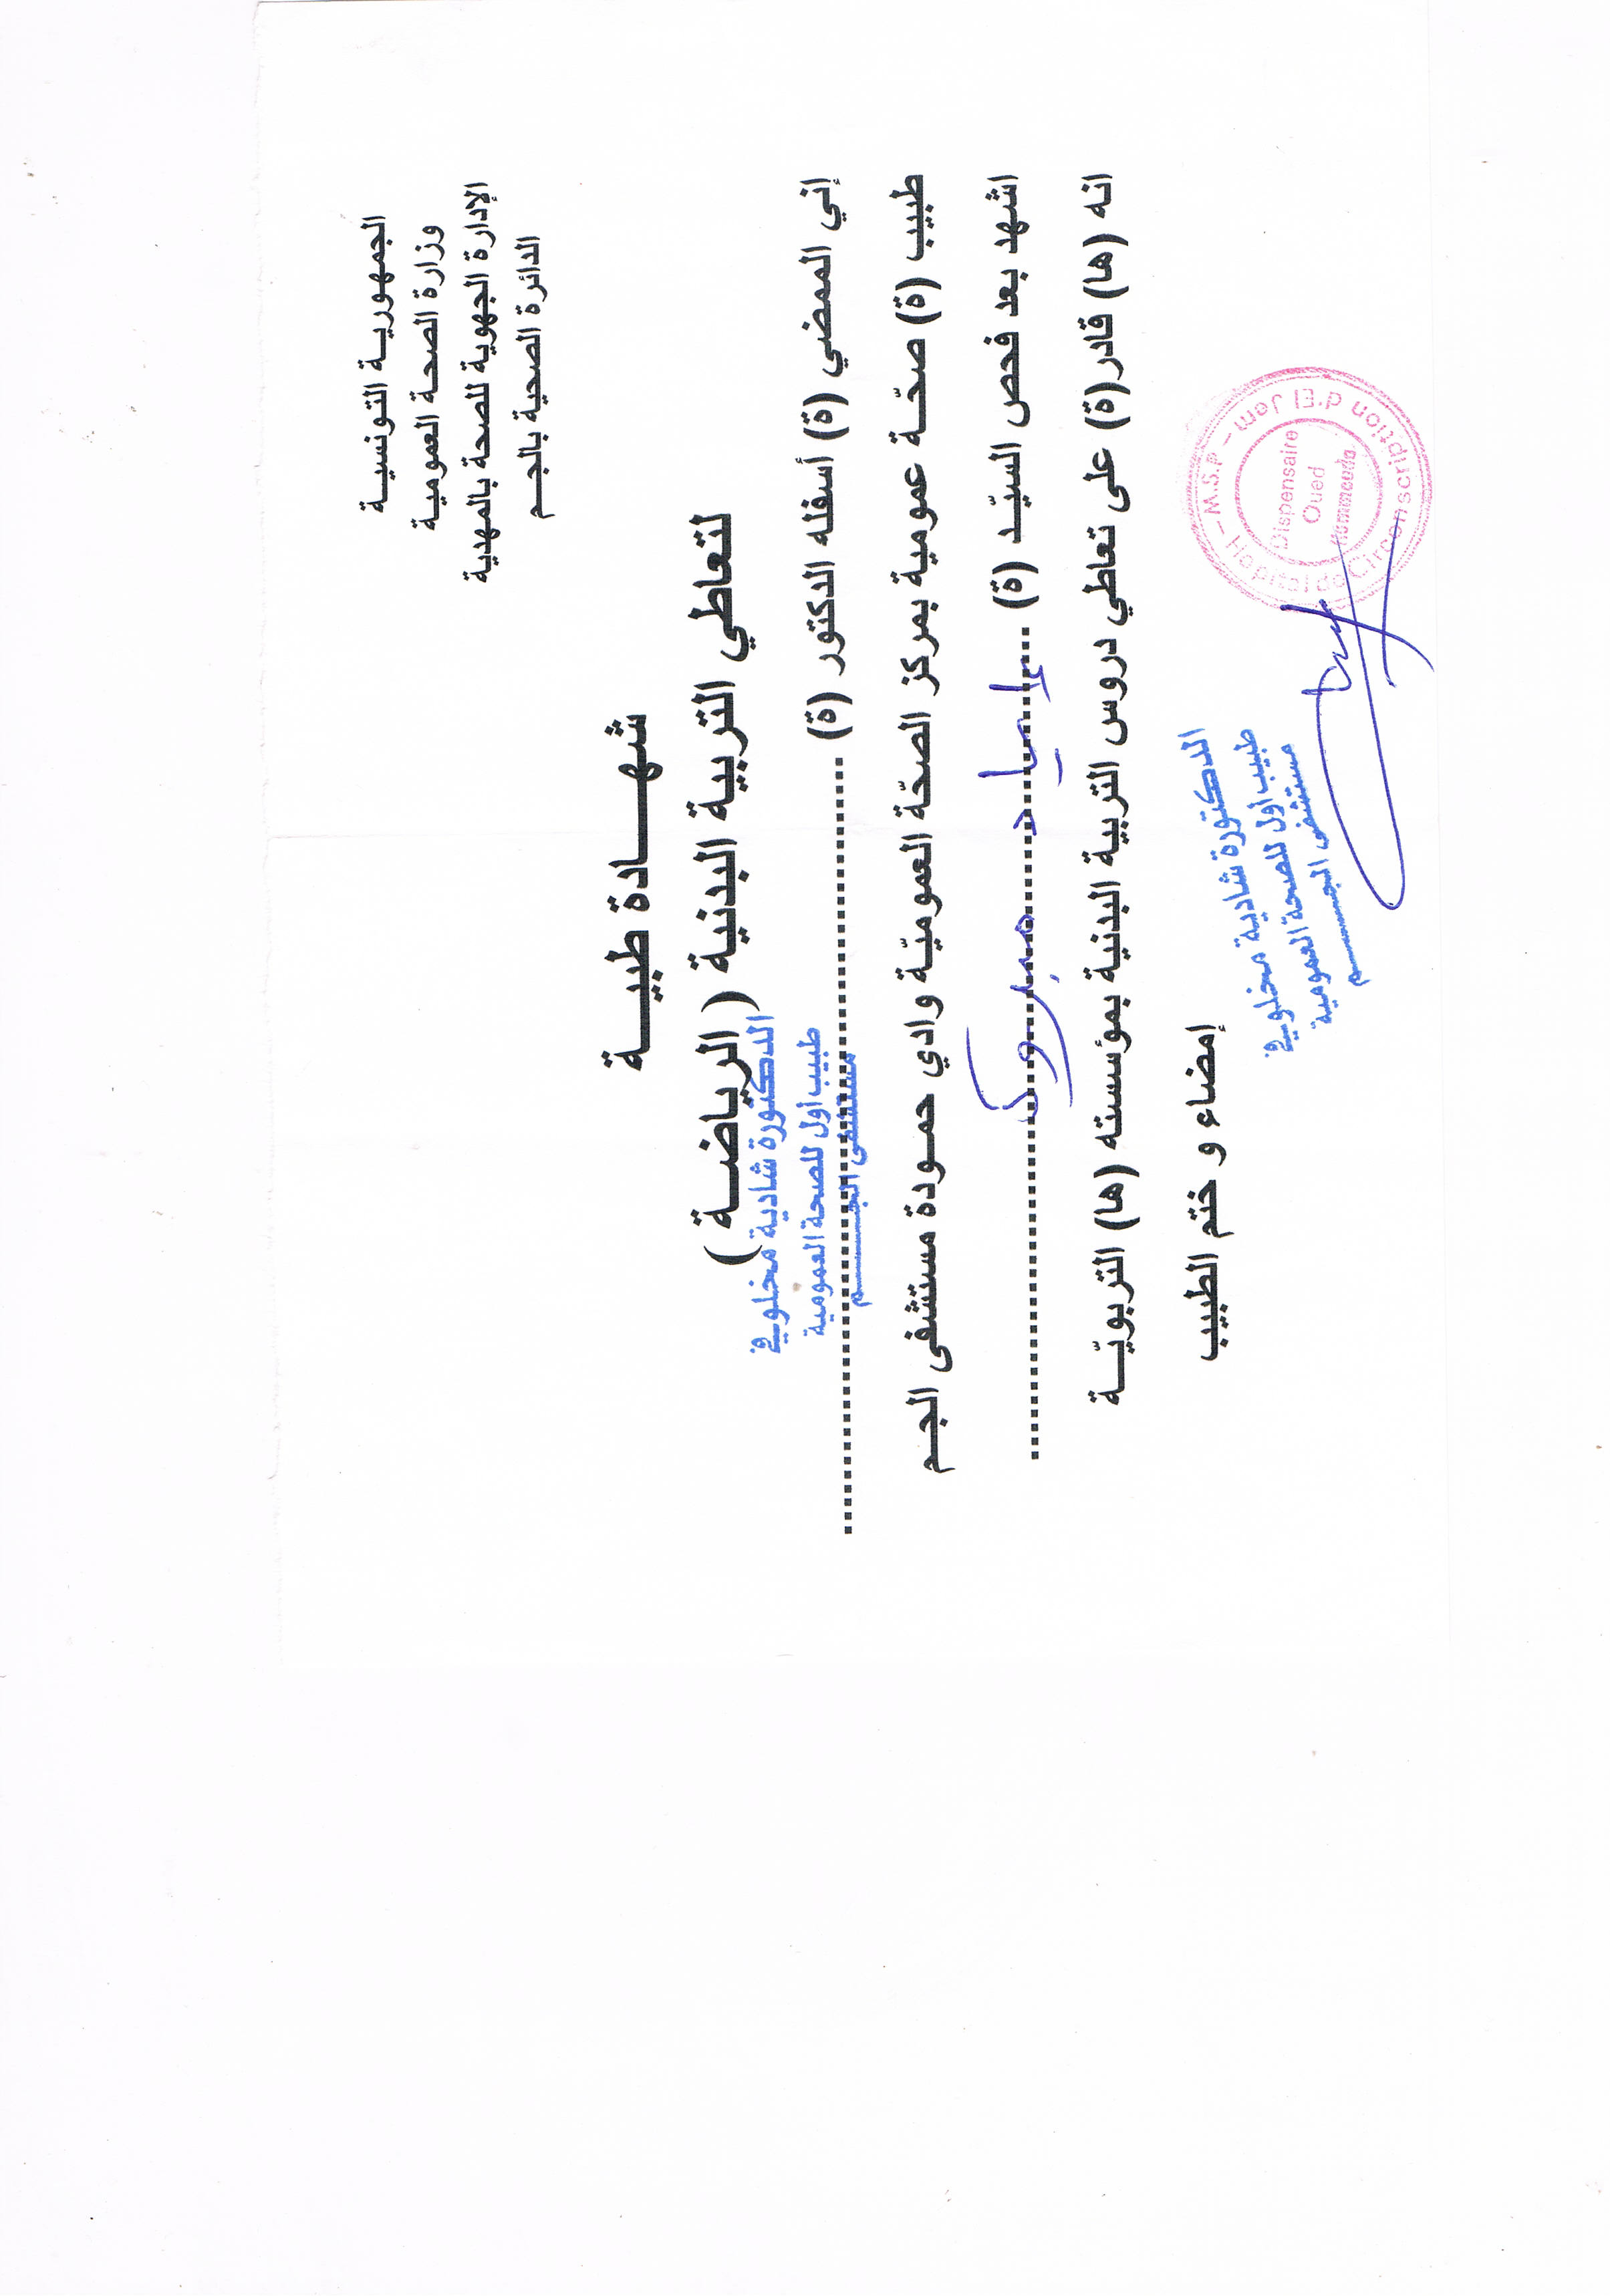 الجمهورية التونسية
وزارة الصحة العمومية
الإدارة الجهوية للصحة بالمهدية
الدائرة الصحية بالجم
شهادة طبية
لتعاطي التربية البدنية ( الرياضة )
إني الممضي (ة) أسفله الدكتور (ة) ........................................
الدكتورة شادية مخلوفي
طبيب أول للصحة العمومية
مستشفى الجم
طبيب (ة) صحّة عمومية بمركز الصحّة العموميّة وادي حمودة مستشفى الجم
اشهد بعد فحص السيّد (ة) ... إياد مبروك ...............
انه (ها) قادر(ة) على تعاطي دروس التربية البدنية بمؤسسته (ها) التربويّة
إمضاء و ختم الطبيب
الدكتورة شادية مخلوفي
طبيب أول للصحة العمومية
مستشفى الجم
- M.S.P - Hopital de Circonscription d'El Jem
Dispensaire
Oued